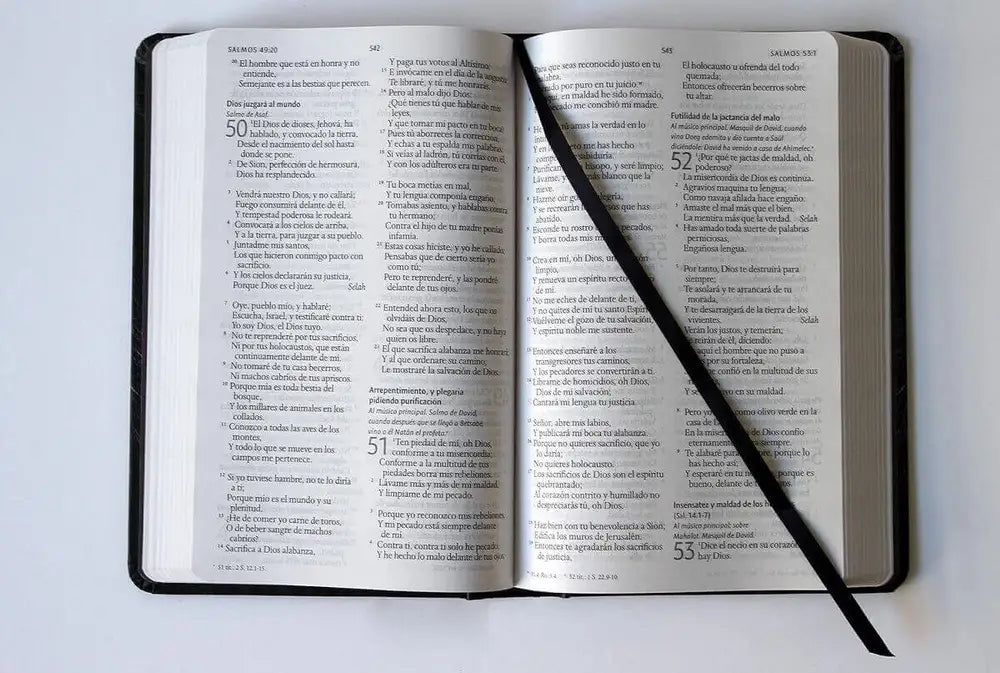 SALMOS 49:20
542
20 El hombre que está en honra y no
entiende,
Semejante es a las bestias que perecen.
Dios juzgará al mundo
Salmo de Asaf.
50 1El Dios de dioses, Jehová, ha
hablado, y convocado la tierra,
Desde el nacimiento del sol hasta
donde se pone.
2 De Sion, perfección de hermosura,
Dios ha resplandecido.
3 Vendrá nuestro Dios, y no callará;
Fuego consumirá delante de él,
Y tempestad poderosa le rodeará.
4 Convocará a los cielos de arriba,
Y a la tierra, para juzgar a su pueblo.
5 Juntadme mis santos,
Los que hicieron conmigo pacto con
sacrificio.
6 Y los cielos declararán su justicia,
Porque Dios es el juez. Selah
7 Oye, pueblo mío, y hablaré;
Escucha, Israel, y testificaré contra ti:
Yo soy Dios, el Dios tuyo.
8 No te reprenderé por tus sacrificios,
Ni por tus holocaustos, que están
continuamente delante de mí.
9 No tomaré de tu casa becerros,
Ni machos cabríos de tus apriscos.
10 Porque mía es toda bestia del
bosque,
Y los millares de animales en los
collados.
11 Conozco a todas las aves de los
montes,
Y todo lo que se mueve en los
campos me pertenece.
12 Si yo tuviese hambre, no te lo diría
a ti;
Porque mío es el mundo y su
plenitud.
13 ¿He de comer yo carne de toros,
O de beber sangre de machos
cabríos?
14 Sacrifica a Dios alabanza,
Y paga tus votos al Altísimo;
15 E invócame en el día de la angustia;
Te libraré, y tú me honrarás.
16 Pero al malo dijo Dios:
¿Qué tienes tú que hablar de mis
leyes,
Y que tomar mi pacto en tu boca?
17 Pues tú aborreces la corrección,
Y echas a tu espalda mis palabras.
18 Si veías al ladrón, tú corrías con él,
Y con los adúlteros era tu parte.
19 Tu boca metías en mal,
Y tu lengua componía engaño.
20 Tomabas asiento, y hablabas contra
tu hermano;
Contra el hijo de tu madre ponías
infamia.
21 Estas cosas hiciste, y yo he callado;
Pensabas que de cierto sería yo
como tú;
Pero te reprenderé, y las pondré
delante de tus ojos.
22 Entended ahora esto, los que os
olvidáis de Dios,
No sea que os despedace, y no haya
quien os libre.
23 El que sacrifica alabanza me honrará;
Y al que ordenare su camino,
Le mostraré la salvación de Dios.
Arrepentimiento, y plegaria
pidiendo purificación
Al músico principal. Salmo de David,
cuando después que se llegó a Betsabé,
vino a él Natán el profeta.*
51 1Ten piedad de mí, oh Dios,
conforme a tu misericordia;
Conforme a la multitud de tus
piedades borra mis rebeliones.
2 Lávame más y más de mi maldad,
Y límpiame de mi pecado.
3 Porque yo reconozco mis rebeliones,
Y mi pecado está siempre delante
de mí.
4 Contra ti, contra ti solo he pecado,
Y he hecho lo malo delante de tus ojos
* 51 tít.: 2 S. 12.1-15.
543
SALMOS 53:1
Para que seas reconocido justo en tu
por puro en tu juicio.*
en maldad he sido formado,
me concibió mi madre.
tú amas la verdad en lo
me has hecho
sabiduría.
hisopo, y seré limpio;
Lávame, más blanco que la
nieve.
Hazme oír
Y se recrearán que has
abatido.
Esconde tu rostro pecados,
Y borra todas mis
10 Crea en mí, oh Dios, un
limpio,
Y renueva un espíritu recto
de mí.
No me eches de delante de ti,
Y no quites de mí tu santo Espíritu
Vuélveme el gozo de tu salvación,
Y espíritu noble me sustente.
Entonces enseñaré a los
transgresores tus caminos,
Y los pecadores se convertirán a ti.
Líbrame de homicidios, oh Dios,
Dios de mi salvación;
Cantará mi lengua tu justicia.
Señor, abre mis labios,
Y publicará mi boca tu alabanza.
Porque no quieres sacrificio, que yo
lo daría;
No quieres holocausto.
Los sacrificios de Dios son el espíritu
quebrantado;
Al corazón contrito y humillado no
despreciarás tú, oh Dios.
Haz bien con tu benevolencia a Sion;
Edifica los muros de Jerusalén.
Entonces te agradarán los sacrificios
de justicia,
El holocausto u ofrenda del todo
quemada;
Entonces ofrecerán becerros sobre
tu altar.
Futilidad de la jactancia del malo
Al músico principal. Masquil de David, cuando
vino Doeg edomita y dio cuenta a Saúl
diciéndole: David ha venido a casa de Ahimelec.*
52 1¿Por qué te jactas de maldad, oh
poderoso?
La misericordia de Dios es continua.
2 Agravios maquina tu lengua;
Como navaja afilada hace engaño.
3 Amaste el mal más que el bien,
La mentira más que la verdad. Selah
4 Has amado toda suerte de palabras
perniciosas,
Engañosa lengua.
5 Por tanto, Dios te destruirá para
siempre;
Te asolará y te arrancará de tu
morada,
Y te desarraigará de la tierra de los
vivientes. Selah
Verán los justos, y temerán;
Se reirán de él, diciendo:
aquí el hombre que no puso a
por su fortaleza,
confió en la multitud de sus
en su maldad.
8 Pero yo como olivo verde en la
casa de
En la misericordia de Dios confío
eternamente siempre.
9 Te alabaré para siempre, porque lo
has hecho así;
Y esperaré en tu porque es
bueno, delante de
Insensatez y maldad de los
(Sal. 14.1-7)
Al músico principal; sobre
Mahalat. Masquil de David.
53 1Dice el necio en su corazón
hay Dios.
Ro.3.4. * 52 tít.: 1 S. 22.9-10.